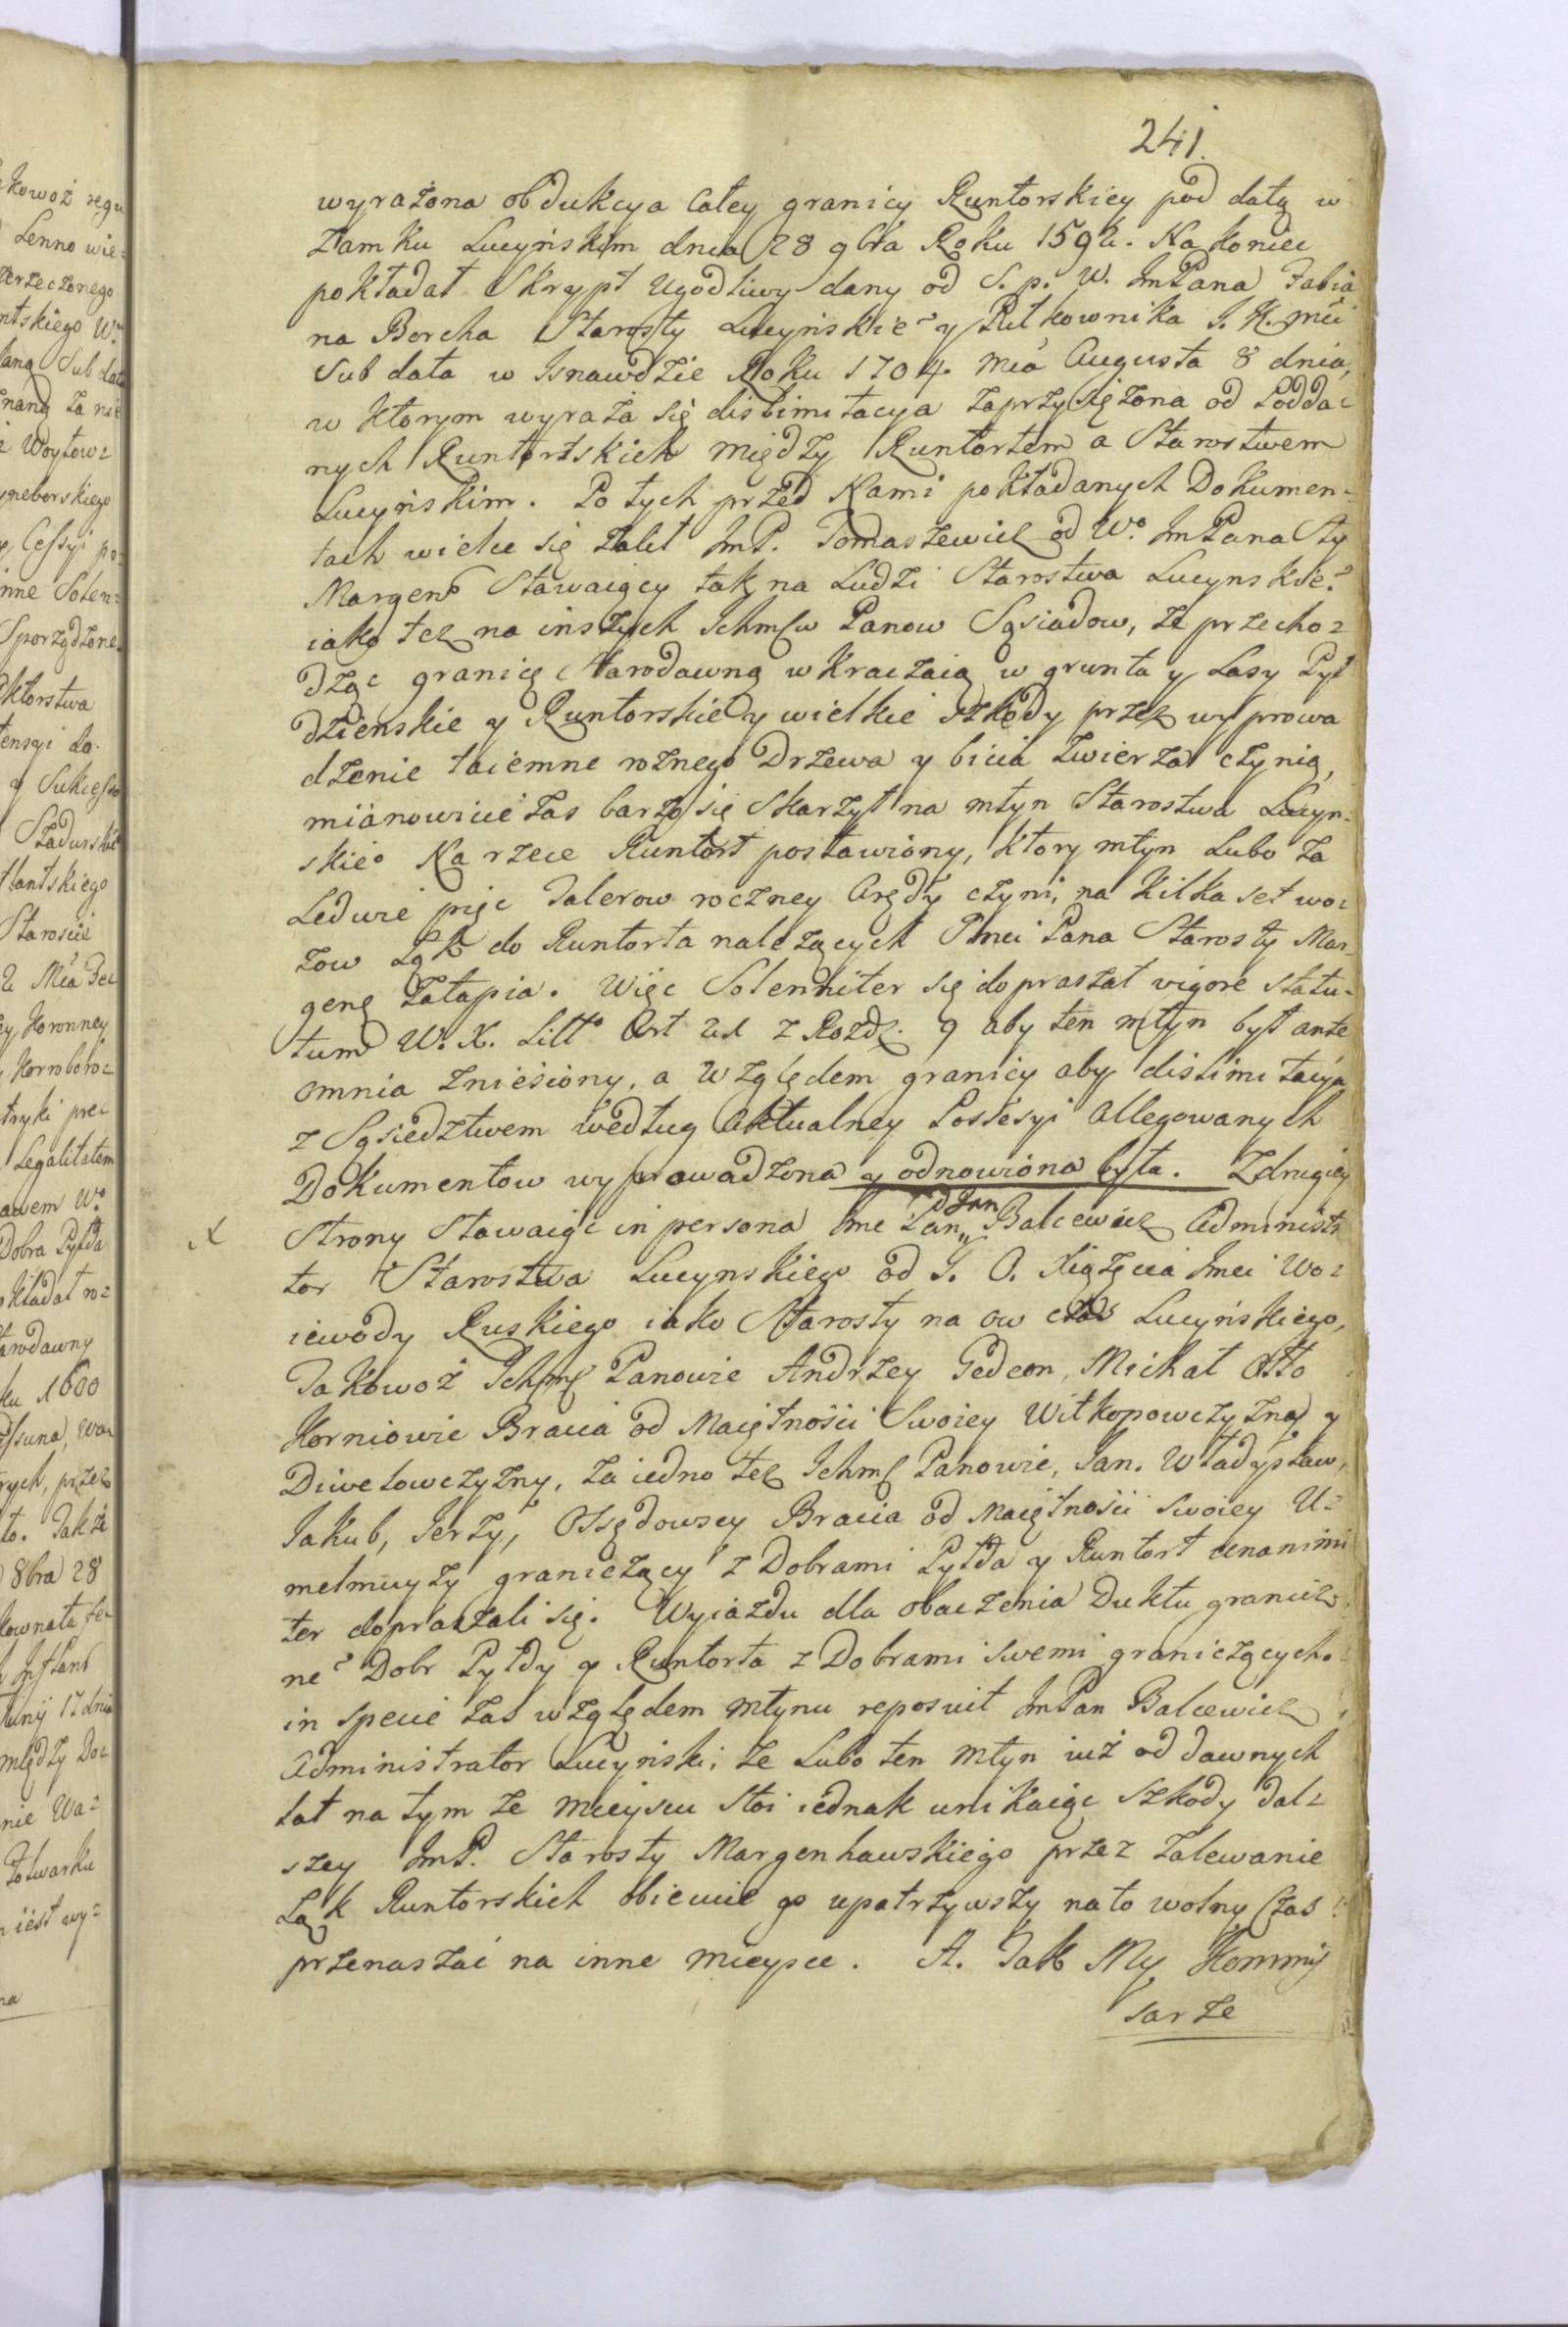 241.
wyrażona obdukcya całey granicy Runtorskiey pod datą w
Zamku Lucyńskim dnia 28 9bra Roku 1592. Nakoniec
pokładał Skrypt Ugodliwy dany od S. p. W. JmPana Fabia
na Borcha Starosty Lucyńskieº y Pułkownika J. K. mći
Sub data w Isnawdzie Roku 1704. mća Augusta 8 dnia,
w ktorym wyraża się dislimitacya zaprzysiężona od Podda=
nych Runtortskich między Runtortem a Starostwem
Lucyńskim. Po tych przed Nami pokładanych Dokumen=
tach wielce się żalił JmP. Tomaszewicz od Wº JmPana Sty
Margenº Stawaiący tak na Ludzi Starostwa Lucynskieº
iako też na inszych Ichmſw Panow Sąsiadow, że przecho=
dząc granicę Starodawną wkraczaią w grunta y Lasy Pył
dzienskie y Runtorskie y wielkie szkody przez wyprowa
dzenie taiemne rożnego Drzewa y bicia Zwierza czynią,
mianowicie zas barzo się Skarżył na młyn Starostwa Lucyn=
skieº Na rzece Runtort postawiony, ktory młyn Lubo za
Ledwie pięc Talerow roczney Arędy czyni, na kilka set wo=
zow Łąk do Runtorta należących Jmci Pana Starosty Mar=
geng Zatapia. Więc Solenniter się dopraszał vigore statu=
tum W. X. Littº Art 21 z Rozdz. 9 aby ten młyn był ante
omnia znieśiony, a względem granicy aby dislimitacya
z Sąsiedztwem według Aktualney Possesyi Allegowanych
Dokumentow wyprowadzona y odnowiona była. Zdrugiey
X Strony Stawaiąc in persona Jmc Pan Jan Balcewicz Administra
tor Starostwa Lucynskiego od J. O. Xiążęcia Jmci Wo=
iewody Ruskiego iako Starosty na ow czas Lucyńskiego,
Jakowoż Ichmſ Panowie Andrzey Gedeon, Michał Otto
Korniowie Bracia od Maiętności Swoiey Witkopowczyzną y
Diwelowczyzny, za iedno też Ichmſ Panowie, Jan, Władysław,
Jakub, Jerzy, Ossędowscy Bracia od Maiętności swoiey U=
melmuyży graniczący z Dobrami Pyłda y Runtort unanimi
ter dopraszali się. Wyiazdu dla obaczenia Duktu granicz=
neº Dobr Pyłdy y Runtorta z Dobrami swemi graniczących.
in specie zas względem młynu reposuit JmPan Balcewicz
Administrator Lucyński, że Lubo ten Młyn iuż od dawnych
lat na tym że mieyscu stoi iednak unikaiąc szkody dal=
szey JmP. Starosty Margenhawskiego przez zalewanie
Łąk Runtorskich obiecuie go upatrzywszy na to wolny Czas
przenaszać na inne mieysce. A. Jak My Kommiſ
sarze